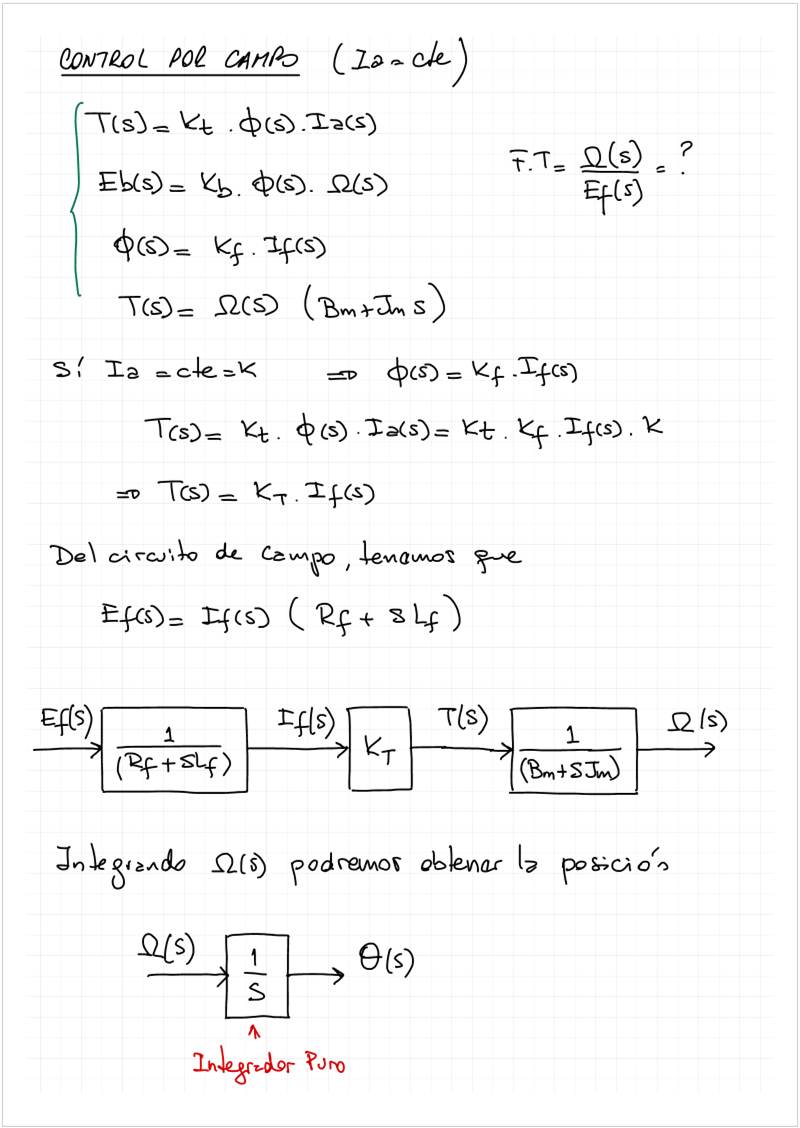 CONTROL POR CAMPO (Ia = cte)
T(s) = Kt . ϕ(s) . Ia(s)
Eb(s) = Kb . ϕ(s) . Ω(s)
F.T = Ω(s)/Ef(s) = ?
ϕ(s) = Kf . If(s)
T(s) = Ω(s) (Bm + Jm s)
Sí Ia = cte = K ⇒ ϕ(s) = Kf . If(s)
T(s) = Kt . ϕ(s) . Ia(s) = Kt . Kf . If(s) . K
⇒ T(s) = KT . If(s)
Del circuito de campo, tenamos que
Ef(s) = If(s) (Rf + SLf)
Ef(s) 1/(Rf + SLf) If(s) KT T(s) 1/(Bm + SJm) Ω(s)
Integrando Ω(s) podremos obtener la posición
Ω(s) 1/S θ(s)
Integrador Puro